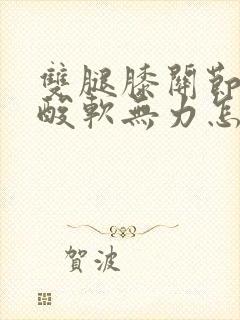 雙腿膝關節
酸軟無力怎
賀波